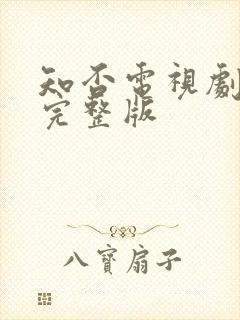 知否電視劇
完整版
八寶扇子